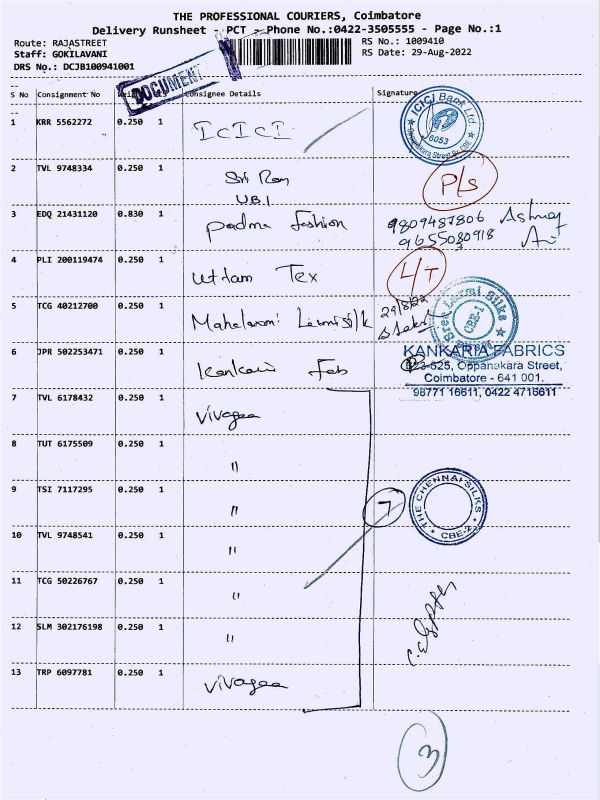 THE PROFESSIONAL COURIERS, Coimbatore
Delivery Runsheet - PCT - Phone No.:0422-3505555 - Page No.:1
Route: RAJASTREET
RS No.: 1009410
Staff: GOKILAVANI
RS Date: 29-Aug-2022
DRS No.: DCJB100941001
DOCUMENT
S No Consignment No Consignee Details Signature
1 KRR 5562272 0.250 1 ICICI
ICICI Bank Ltd
6053
2 TVL 9748334 0.250 1 Sri Ram
UBI
P/S
3 EDQ 21431120 0.830 1 Padma Fashion 9809487806
9655080918
4 PLI 200119474 0.250 1 Uttam Tex L/T
5 TCG 40212700 0.250 1 29/8/22
Sree Laxmi Silks
CBE-1
6 JPR 502253471 0.250 1 Fab
KANKARIA FABRICS
623-625, Oppanakara Street,
Coimbatore - 641 001.
98771 16611, 0422 4716611
7 TVL 6178432 0.250 1 Vivagaa
8 TUT 6175509 0.250 1 "
9 TSI 7117295 0.250 1 " 7
THE CHENNAI SILKS
CBE-2
10 TVL 9748541 0.250 1 "
11 TCG 50226767 0.250 1 "
12 SLM 302176198 0.250 1 "
13 TRP 6097781 0.250 1 Vivagaa
3